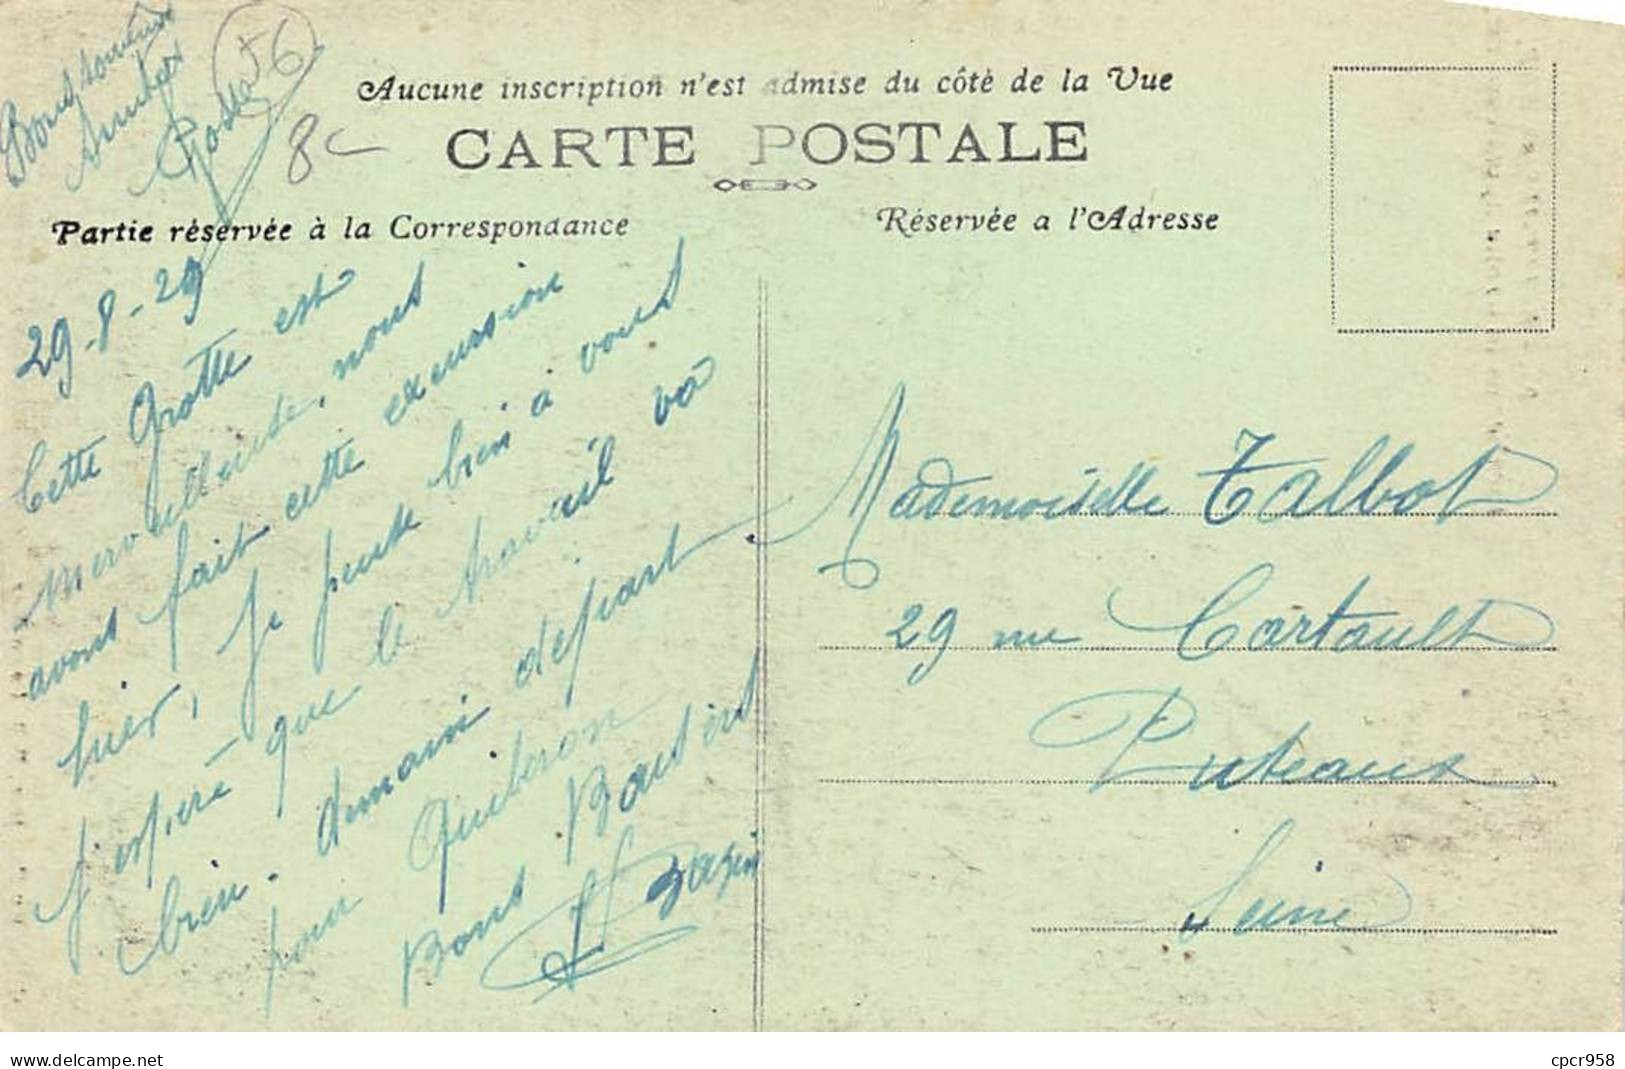 Bons souvenirs
Amitiés
Rose
56
8
Aucune inscription n'est admise du côté de la Vue
CARTE POSTALE
Partie réservée à la Correspondance
Réservée a l'Adresse
29-8-29
Cette Grotte est
merveilleuse, nous
avons fait cette excursion
hier, je pense bien à vous
J'espère que le travail va
bien. demain départ
pour Quiberon
Bons Baisers
Bazin
Mademoiselle Talbot
29 rue Cartault
Puteaux
Seine
www.delcampe.net
cpcr958